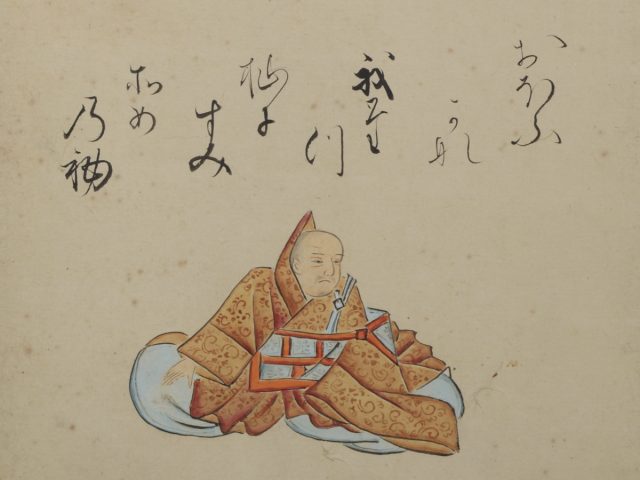 おほふ
かな
我た
つ
杣に
すみ
そめ
乃袖